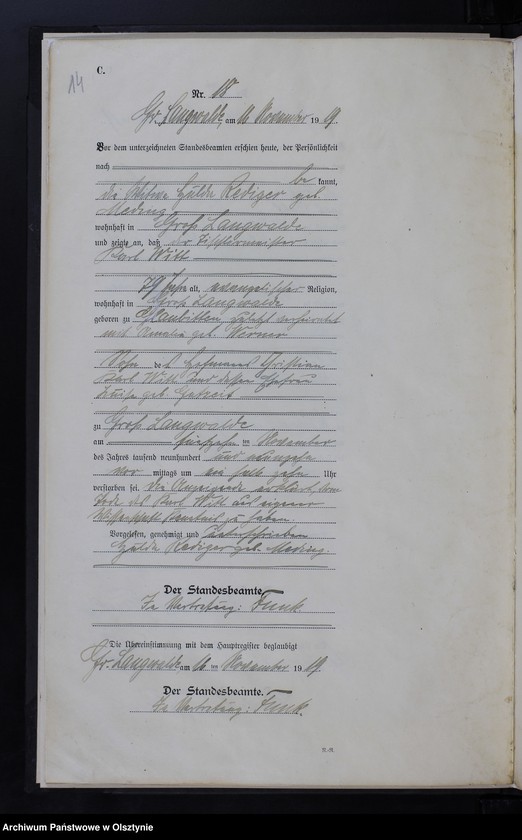 14
C.
Nr. 18
Gr. Langwalde, am 16 November 1919.
Vor dem unterzeichneten Standesbeamten erschien heute, der Persönlichkeit
nach
be kannt,
die Gulda Rediger geb.
Meding
wohnhaft in Groß Langwalde
und zeigte an, daß der Tischlermeister
Karl Witt
79 Jahre alt, evangelischer Religion,
wohnhaft in Groß Langwalde
geboren zu zuletzt verheiratet
mit Amalie geb. Werner
Sohn des Christian
Karl Witt und dessen Ehefrau
Luise geb.
zu Groß Langwalde
am fünfzehn ten November
des Jahres tausend neunhundert und neunzehn
Vor mittags um ein halb zehn Uhr
verstorben sei. Die Anzeigende erklärt, vom
Tode des Karl Witt aus eigener
Wissenschaft Kenntnis zu haben
Vorgelesen, genehmigt und unterschrieben
Gulda Rediger geb. Meding.
Der Standesbeamte.
In Vertretung: Funk
Die Übereinstimmung mit dem Hauptregister beglaubigt
Gr. Langwalde, am 16 ten November 1919.
Der Standesbeamte.
In Vertretung: Funk.
Archiwum Państwowe w Olsztynie